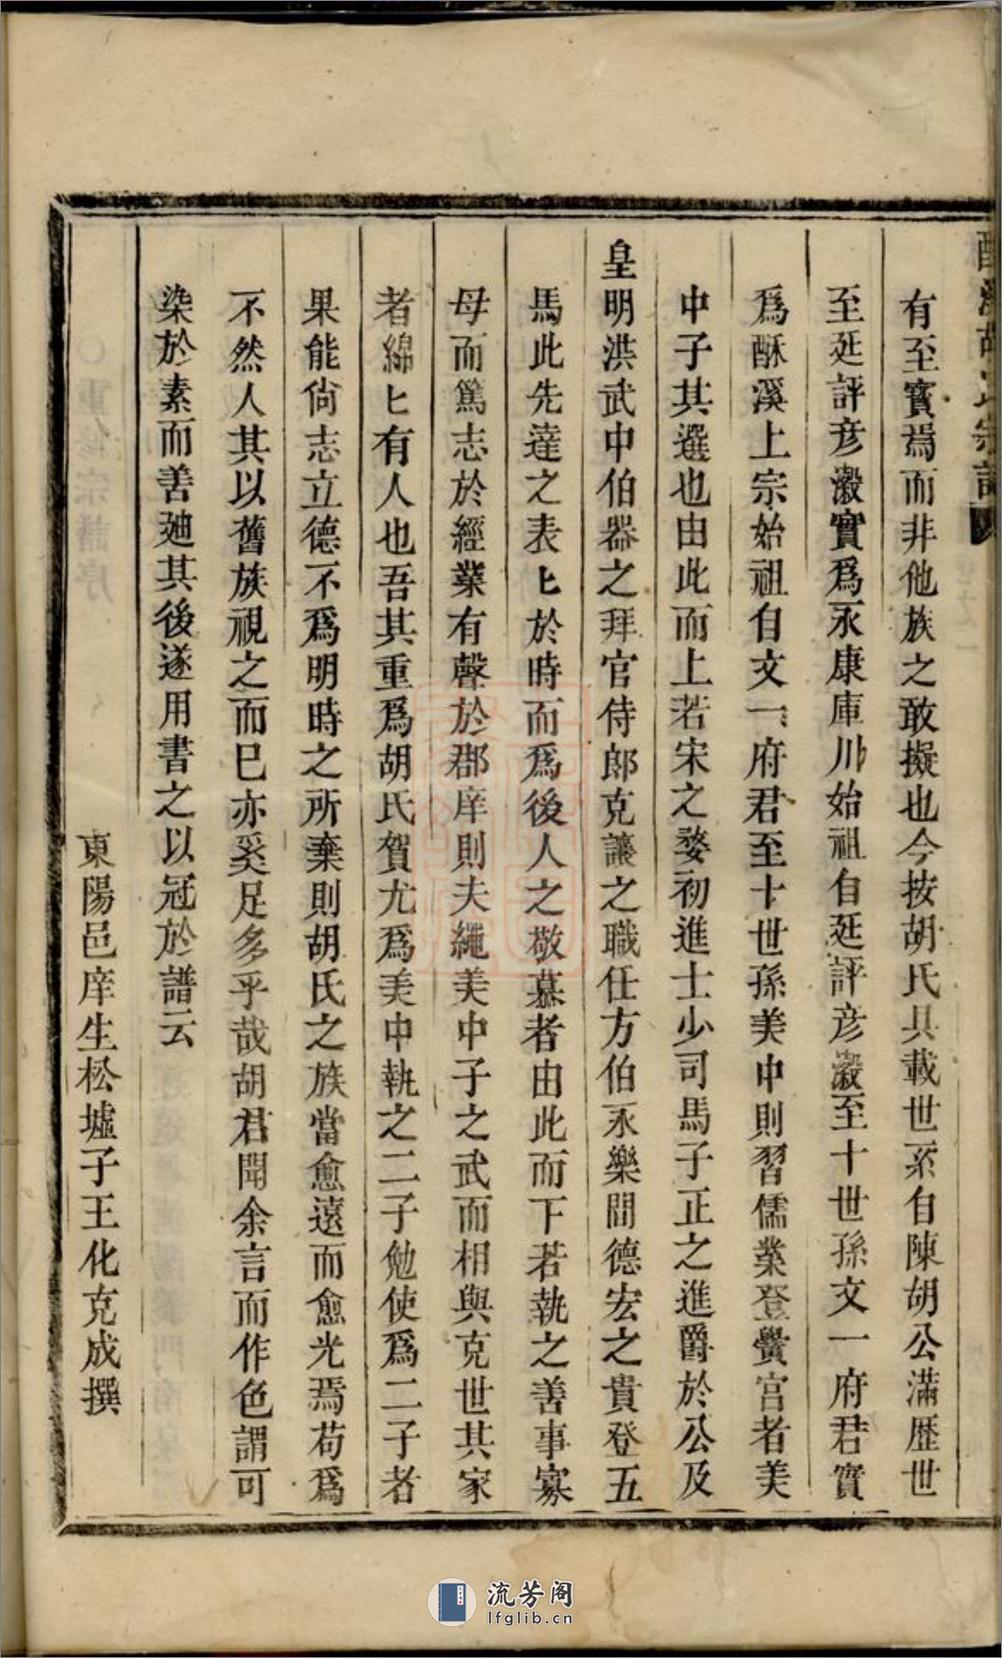 酥溪胡氏宗譜
有至寳焉而非他族之敢擬也今按胡氏具載世系自陳胡公滿歷世
至廷評彦瀫實爲永康庫川始祖自廷評彦瀫至十世孫文一府君實
爲酥溪上宗始祖自文一府君至十世孫美中則習儒業登黌宮者美
中子其選也由此而上若宋之婺初進士少司馬子正之進爵於公及
皇明洪武中伯器之拜官侍郎克讓之職任方伯永樂間德宏之貴登五
馬此先達之表〻於時而爲後人之敬慕者由此而下若執之善事寡
母而篤志於經業有聲於郡庠則夫繩美中子之武而相與克世其家
者綿〻有人也吾其重爲胡氏賀尤爲美中執之二子勉使爲二子者
果能尙志立德不爲明時之所棄則胡氏之族當愈遠而愈光焉苟爲
不然人其以舊族視之而巳亦奚足多乎哉胡君聞余言而作色謂可
染於素而善廸其後遂用書之以冠於譜云
東陽邑庠生松墟子王化克成撰
流芳阁
lfglib.cn